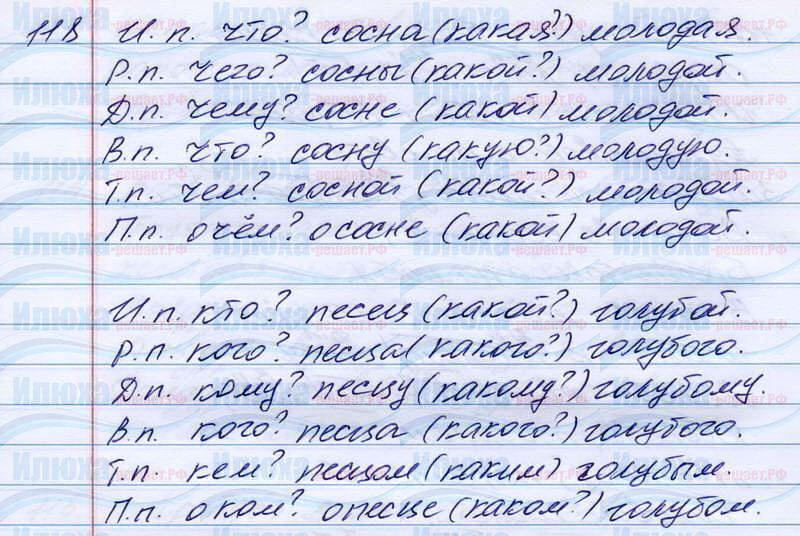 118 И. п. что? сосна (какая?) молодая.
Р.п. чего? сосны (какой?) молодой.
Д.п. чему? сосне (какой) молодой.
В.п. что? сосну (какую?) молодую.
Т.п. чем? сосной (какой?) молодой.
П.п. о чём? о сосне (какой) молодой.
И.п. кто? песец (какой?) голубой.
Р.п. кого? песца (какого?) голубого.
Д.п. кому? песцу (какому?) голубому.
В.п. кого? песца (какого?) голубого.
Т.п. кем? песцом (каким) голубым.
П.п. о ком? о песце (каком?) голубом.